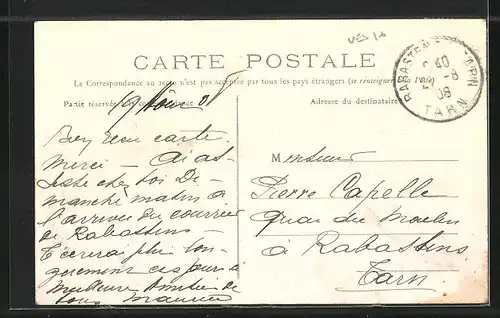 CARTE POSTALE
La Correspondance au recto n'est pas acceptée par tous les pays étrangers (se renseigner à la Poste)
Partie réservée à la correspondance
Adresse du destinataire
19 Août 08
RABASTENS TARN
40
-8
08
TARN
Bien reçu carte.
Merci – Ai as-
siste chez toi Di-
manche matin à
l'arrivée du courrier
de Rabastens –
T'écrirai plus lon-
guement ces jours-ci
Meilleures Amitiés de
Maurice
Monsieur
Pierre Capelle
Quai du Moulin
à Rabastens
Tarn